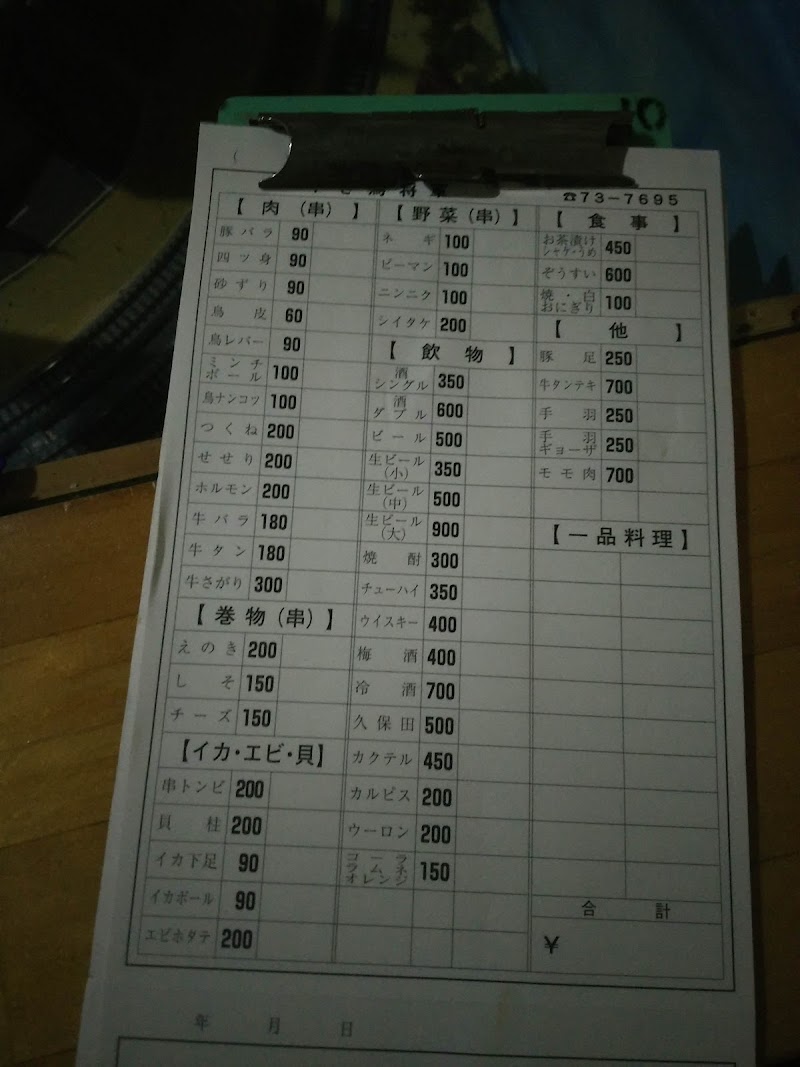 ☎73-7695
【肉(串)】
豚バラ 90
四ツ身 90
砂ずり 90
鳥皮 60
鳥レバー 90
ミンチボール 100
鳥ナンコツ 100
つくね 200
せせり 200
ホルモン 200
牛バラ 180
牛タン 180
牛さがり 300
【巻物(串)】
えのき 200
しそ 150
チーズ 150
【イカ・エビ・貝】
串トンビ 200
貝柱 200
イカ下足 90
イカボール 90
エビホタテ 200
【野菜(串)】
ネギ 100
ピーマン 100
ニンニク 100
シイタケ 200
【飲物】
酒シングル 350
酒ダブル 600
ビール 500
生ビール(小) 350
生ビール(中) 500
生ビール(大) 900
焼酎 300
チューハイ 350
ウイスキー 400
梅酒 400
冷酒 700
久保田 500
カクテル 450
カルピス 200
ウーロン 200
コーラ
ラムネ
オレンジ 150
【食事】
お茶漬け
シャケ・うめ 450
ぞうすい 600
焼・白
おにぎり 100
【他】
豚足 250
牛タンテキ 700
手羽 250
手羽ギョーザ 250
モモ肉 700
【一品料理】
合計
¥
年 月 日